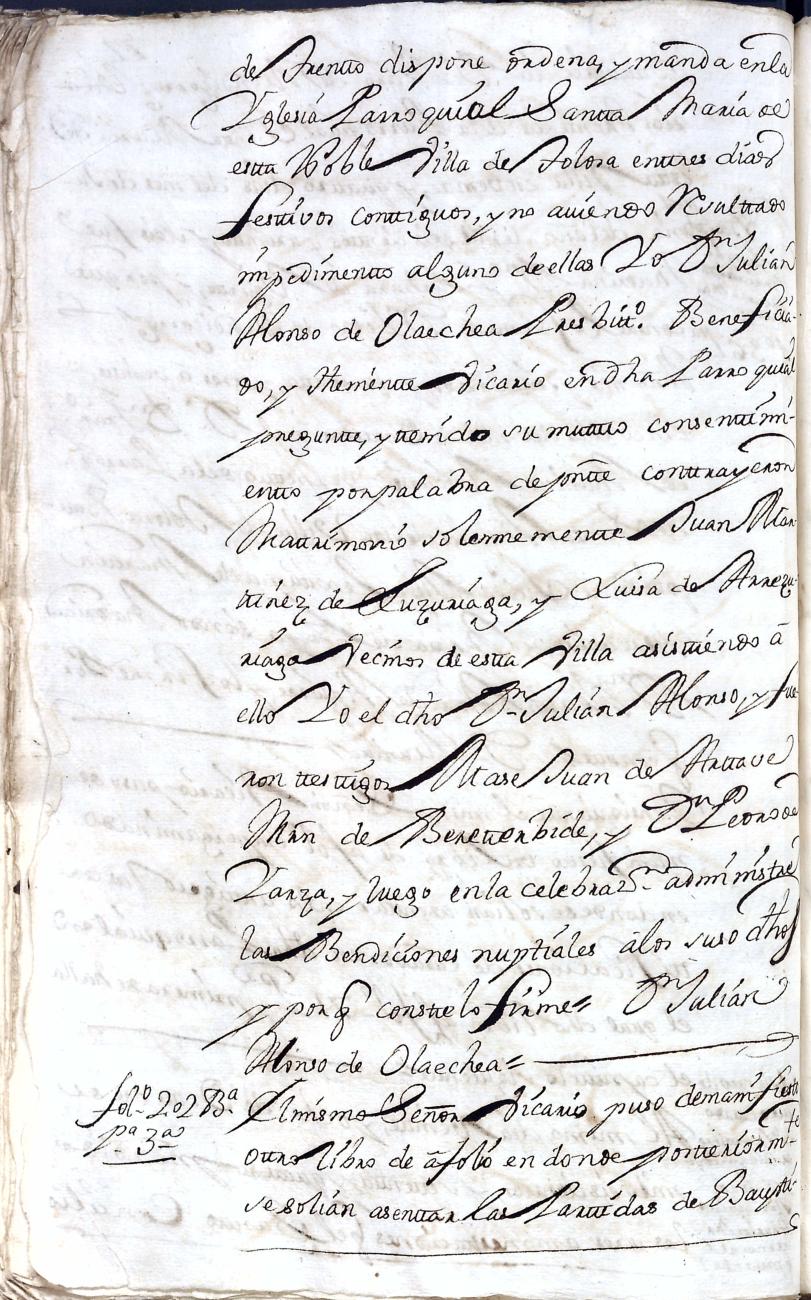 de Trentto dispone ordena, y manda enla
Yglesia Parroquial Santta Maria de
estta Noble Villa de Tolosa enttres dias
festtivos conttiguos, y no aviendo Resulttado
impedimentto alguno deellas Yo Dn Julian
Alonso de Olaechea Presbitto. Beneficia-
do, y Theniente Vicario en dha Parroquial
preguntte, y ttenido su muttuo consenttimi-
entto por palabra de prntte conttrayeron
Mattrimonio solemnementte Juan Mar-
ttinez de Luzuriaga, y Luisa de Arrezu-
riaga Vecinos de estta Villa asisttiendo â
ello Yo el dho Dn Julian Alonso, y fue-
ron ttesttigos Mase Juan de Arttave
Mrn de Beretterbide, y Dn Pedro de
Yarza, y luego en la celebrazon administre
las Bendiciones nuptiales â los suso dhos
y porq constte lo firme = Dn Julian
Alonso de Olaechea =
folo 202 Ba
pa 3a
El mismo Señor Vicario puso de manifiesto
ottro libro de â folio en donde postteriormtte
se solian asenttar las Parttidas de Bapti-